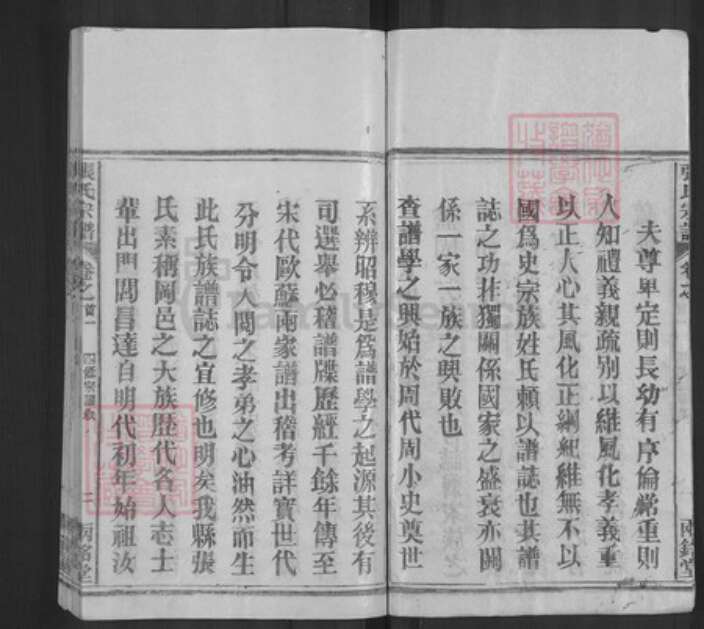 張氏宗譜
夫尊卑定則長幼有序倫常重則
人知禮義親疏別以維風化孝義重
以正人心其風化正綱紀維無不以
國爲史宗族姓氏賴以譜誌也其譜
誌之功非獨關係國家之盛衰亦關
係一家一族之興敗也
兩銘堂
查譜學之興始於周代周小史奠世
系辨昭穆是爲譜學之起源其後有
司選舉必稽譜牒歷經千餘年傳至
宋代歐蘇兩家譜出稽考詳實世代
分明令人閱之孝弟之心油然而生
此氏族譜誌之宜修也明矣我縣張
氏素稱岡邑之大族歷代名人志士
輩出門閭昌達自明代初年始祖汝
張氏宗譜
卷之首一
二
兩銘堂